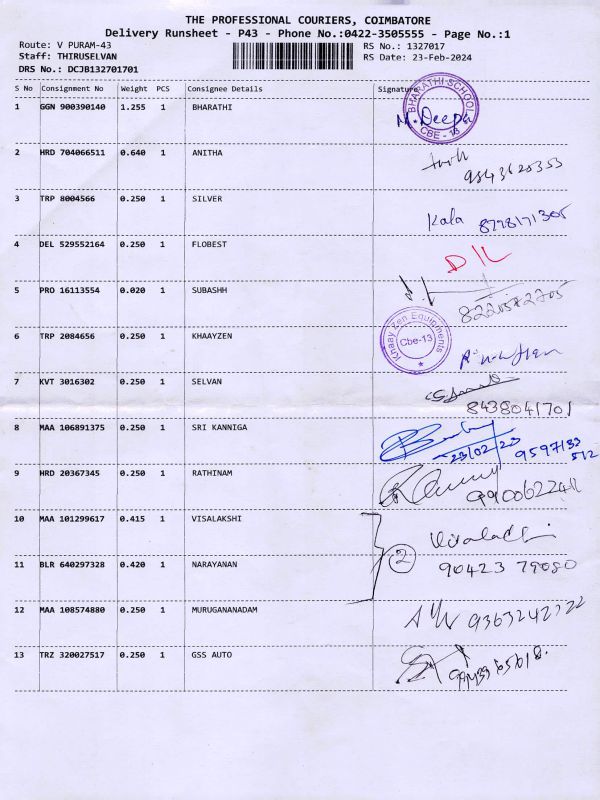 THE PROFESSIONAL COURIERS, COIMBATORE
Delivery Runsheet - P43 - Phone No.:0422-3505555 - Page No.:1
Route: V PURAM-43 RS No.: 1327017
Staff: THIRUSELVAN RS Date: 23-Feb-2024
DRS No.: DCJB132701701
S No Consignment No Weight PCS Consignee Details Signature
1 GGN 900390140 1.255 1 BHARATHI BHARATHI SCHOOL CBE - 13
M. Deepa
2 HRD 704066511 0.640 1 ANITHA
9843620353
3 TRP 8004566 0.250 1 SILVER Kala 8778171305
4 DEL 529552164 0.250 1 FLOBEST D/L
5 PRO 16113554 0.020 1 SUBASHH 8220572705
6 TRP 2084656 0.250 1 KHAAYZEN Khaay Zen Equipments Cbe-13
7 KVT 3016302 0.250 1 SELVAN
8438041701
8 MAA 106891375 0.250 1 SRI KANNIGA
23/02/23 9597133
512
9 HRD 20367345 0.250 1 RATHINAM
10 MAA 101299617 0.415 1 VISALAKSHI
2
11 BLR 640297328 0.420 1 NARAYANAN 90423 79080
12 MAA 108574880 0.250 1 MURUGANANADAM
13 TRZ 320027517 0.250 1 GSS AUTO